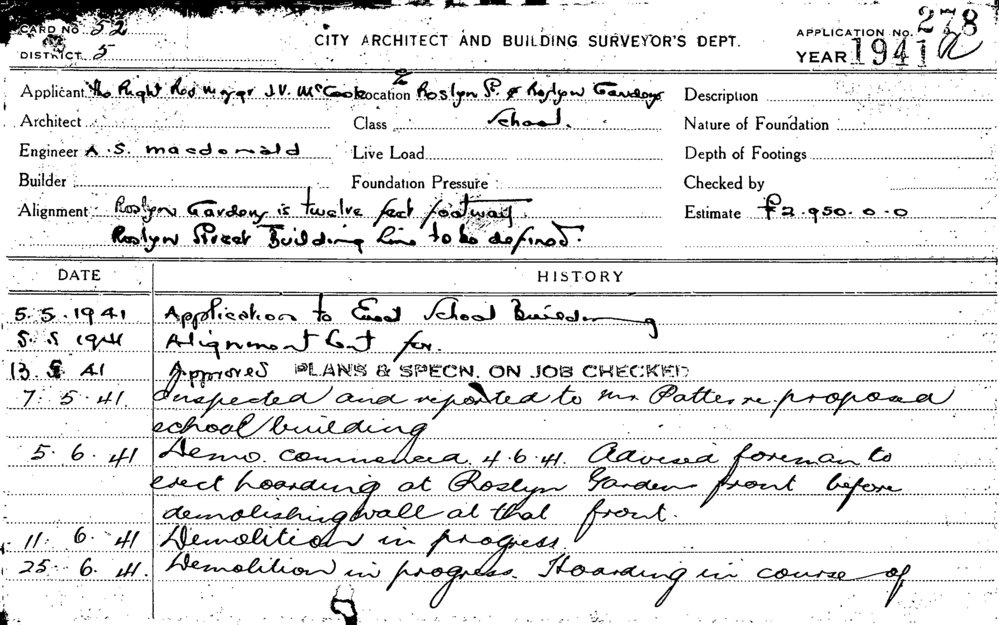 CARD NO. 52
DISTRICT 5
CITY ARCHITECT AND BUILDING SURVEYOR'S DEPT.
APPLICATION NO. 278
YEAR 1941
Applicant The Right Rev J.V. McCook Location Roslyn St. & Roslyn Gardens Description
Architect Class School. Nature of Foundation
Engineer A.S. macdonald Live Load Depth of Footings
Builder Foundation Pressure Checked by
Alignment Roslyn Gardens is twelve feet footway Estimate £2,950.0.0
Roslyn Street Building line to be defined.
DATE HISTORY
5.5.1941 Application to Erect School Building
5.5 1941 Alignment Cert for.
13.5 41 Approved PLANS & SPECN. ON JOB CHECKED
7.5.41. Inspected and reported to Mr. re proposed
school building
5.6.41 Demo. commenced 4.6.41. Advised foreman to
erect hoarding at Roslyn Gardens front before
demolishing wall at that front.
11.6.41 Demolition in progress.
25.6.41. Demolition in progress. Hoarding in course of